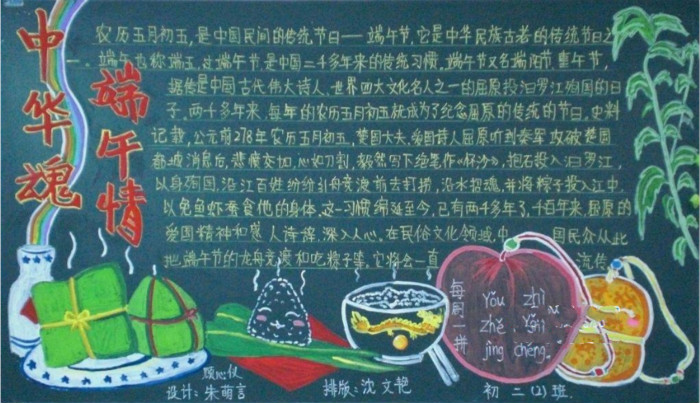 中华魂
端午情
农历五月初五,是中国民间的传统节日——端午节,它是中华民族古老的传统节日之
一。端午也称端五,过端午节是中国二千多年来的传统习惯,端午节又名端阳节、重午节,
据传是中国古代伟大诗人、世界四大文化名人之一的屈原投汨罗江殉国的日
子,两千多年来,每年的农历五月初五就成为了纪念屈原的传统的节日,史料
记载,公元前278年农历五月初五,楚国大夫、爱国诗人屈原听到秦军攻破楚国
都城消息后,悲愤交加,心如刀割,毅然写下绝笔作《怀沙》,抱石投入汨罗江,
以身殉国,沿江百姓纷纷引舟竞渡前去打捞,沿水招魂,并将粽子投入江中,
以免鱼虾蚕食他的身体,这一习惯绵延至今,已有两千多年了,千百年来,屈原的
爱国精神和感人诗辞,深入人心,在民俗文化领域中 国民众从此
把端午节的龙舟竞渡和吃粽子等,它将会一直 流传
每周一拼
Yǒu zhì
zhě
jìng chéng
顾心仪
设计:朱萌言
排版:沈文艳
初二(2)班